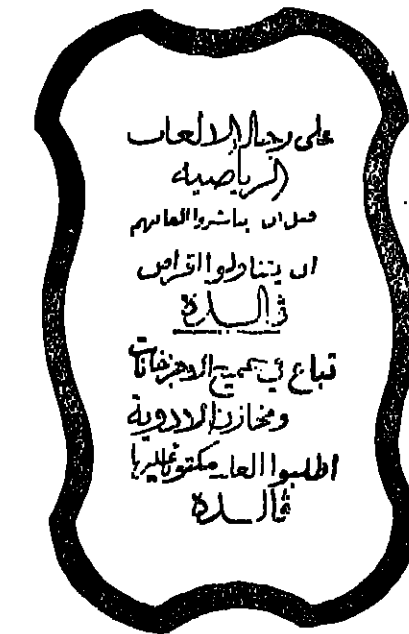 على رجال الالعاب
الرياضيه
قبل ان يباشروا العابهم
ان يتناولوا اقراص
ڤالـــدة
تباع في جميع الاجزخانات
ومخازن الادوية
اطلبوا العلب مكتوبا عليها
ڤالـــدة